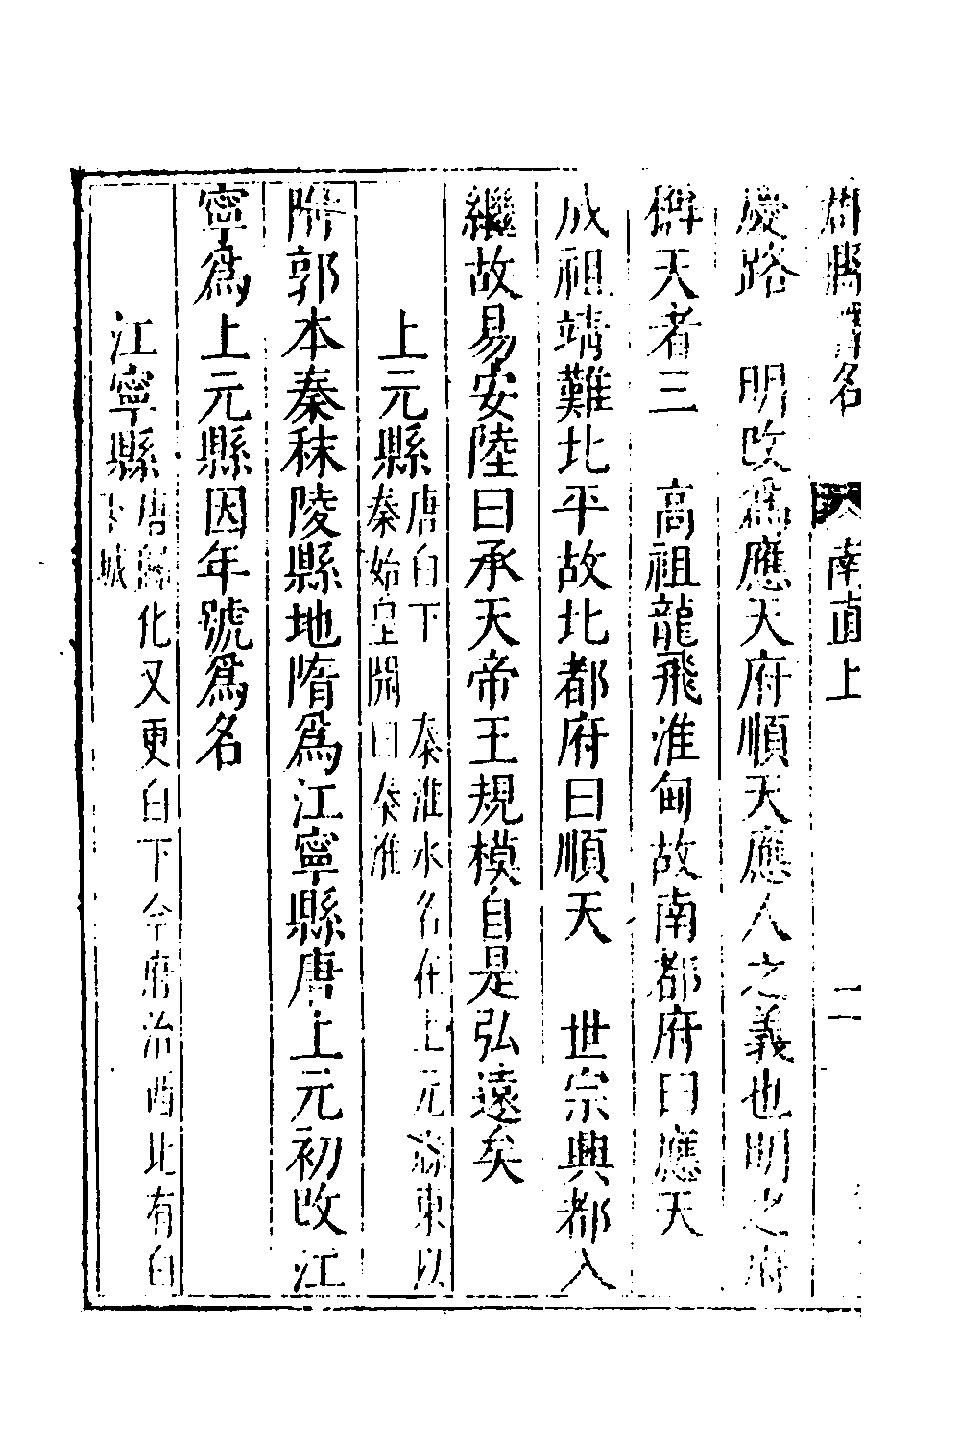 郡縣釋名 南直上 二
慶路 明改爲應天府順天應人之義也明之府
稱天者三 高祖龍飛淮甸故南都府曰應天
成祖靖難北平故北都府曰順天 世宗興都入
繼故易安陸曰承天帝王規模自是弘遠矣
上元縣 唐白下 秦淮水名在上元縣東以
秦始皇開曰秦淮
附郭本秦秣陵縣地隋爲江寧縣唐上元初改江
寧爲上元縣因年號爲名
江寧縣 唐歸化又更白下今府治西北有白
下城